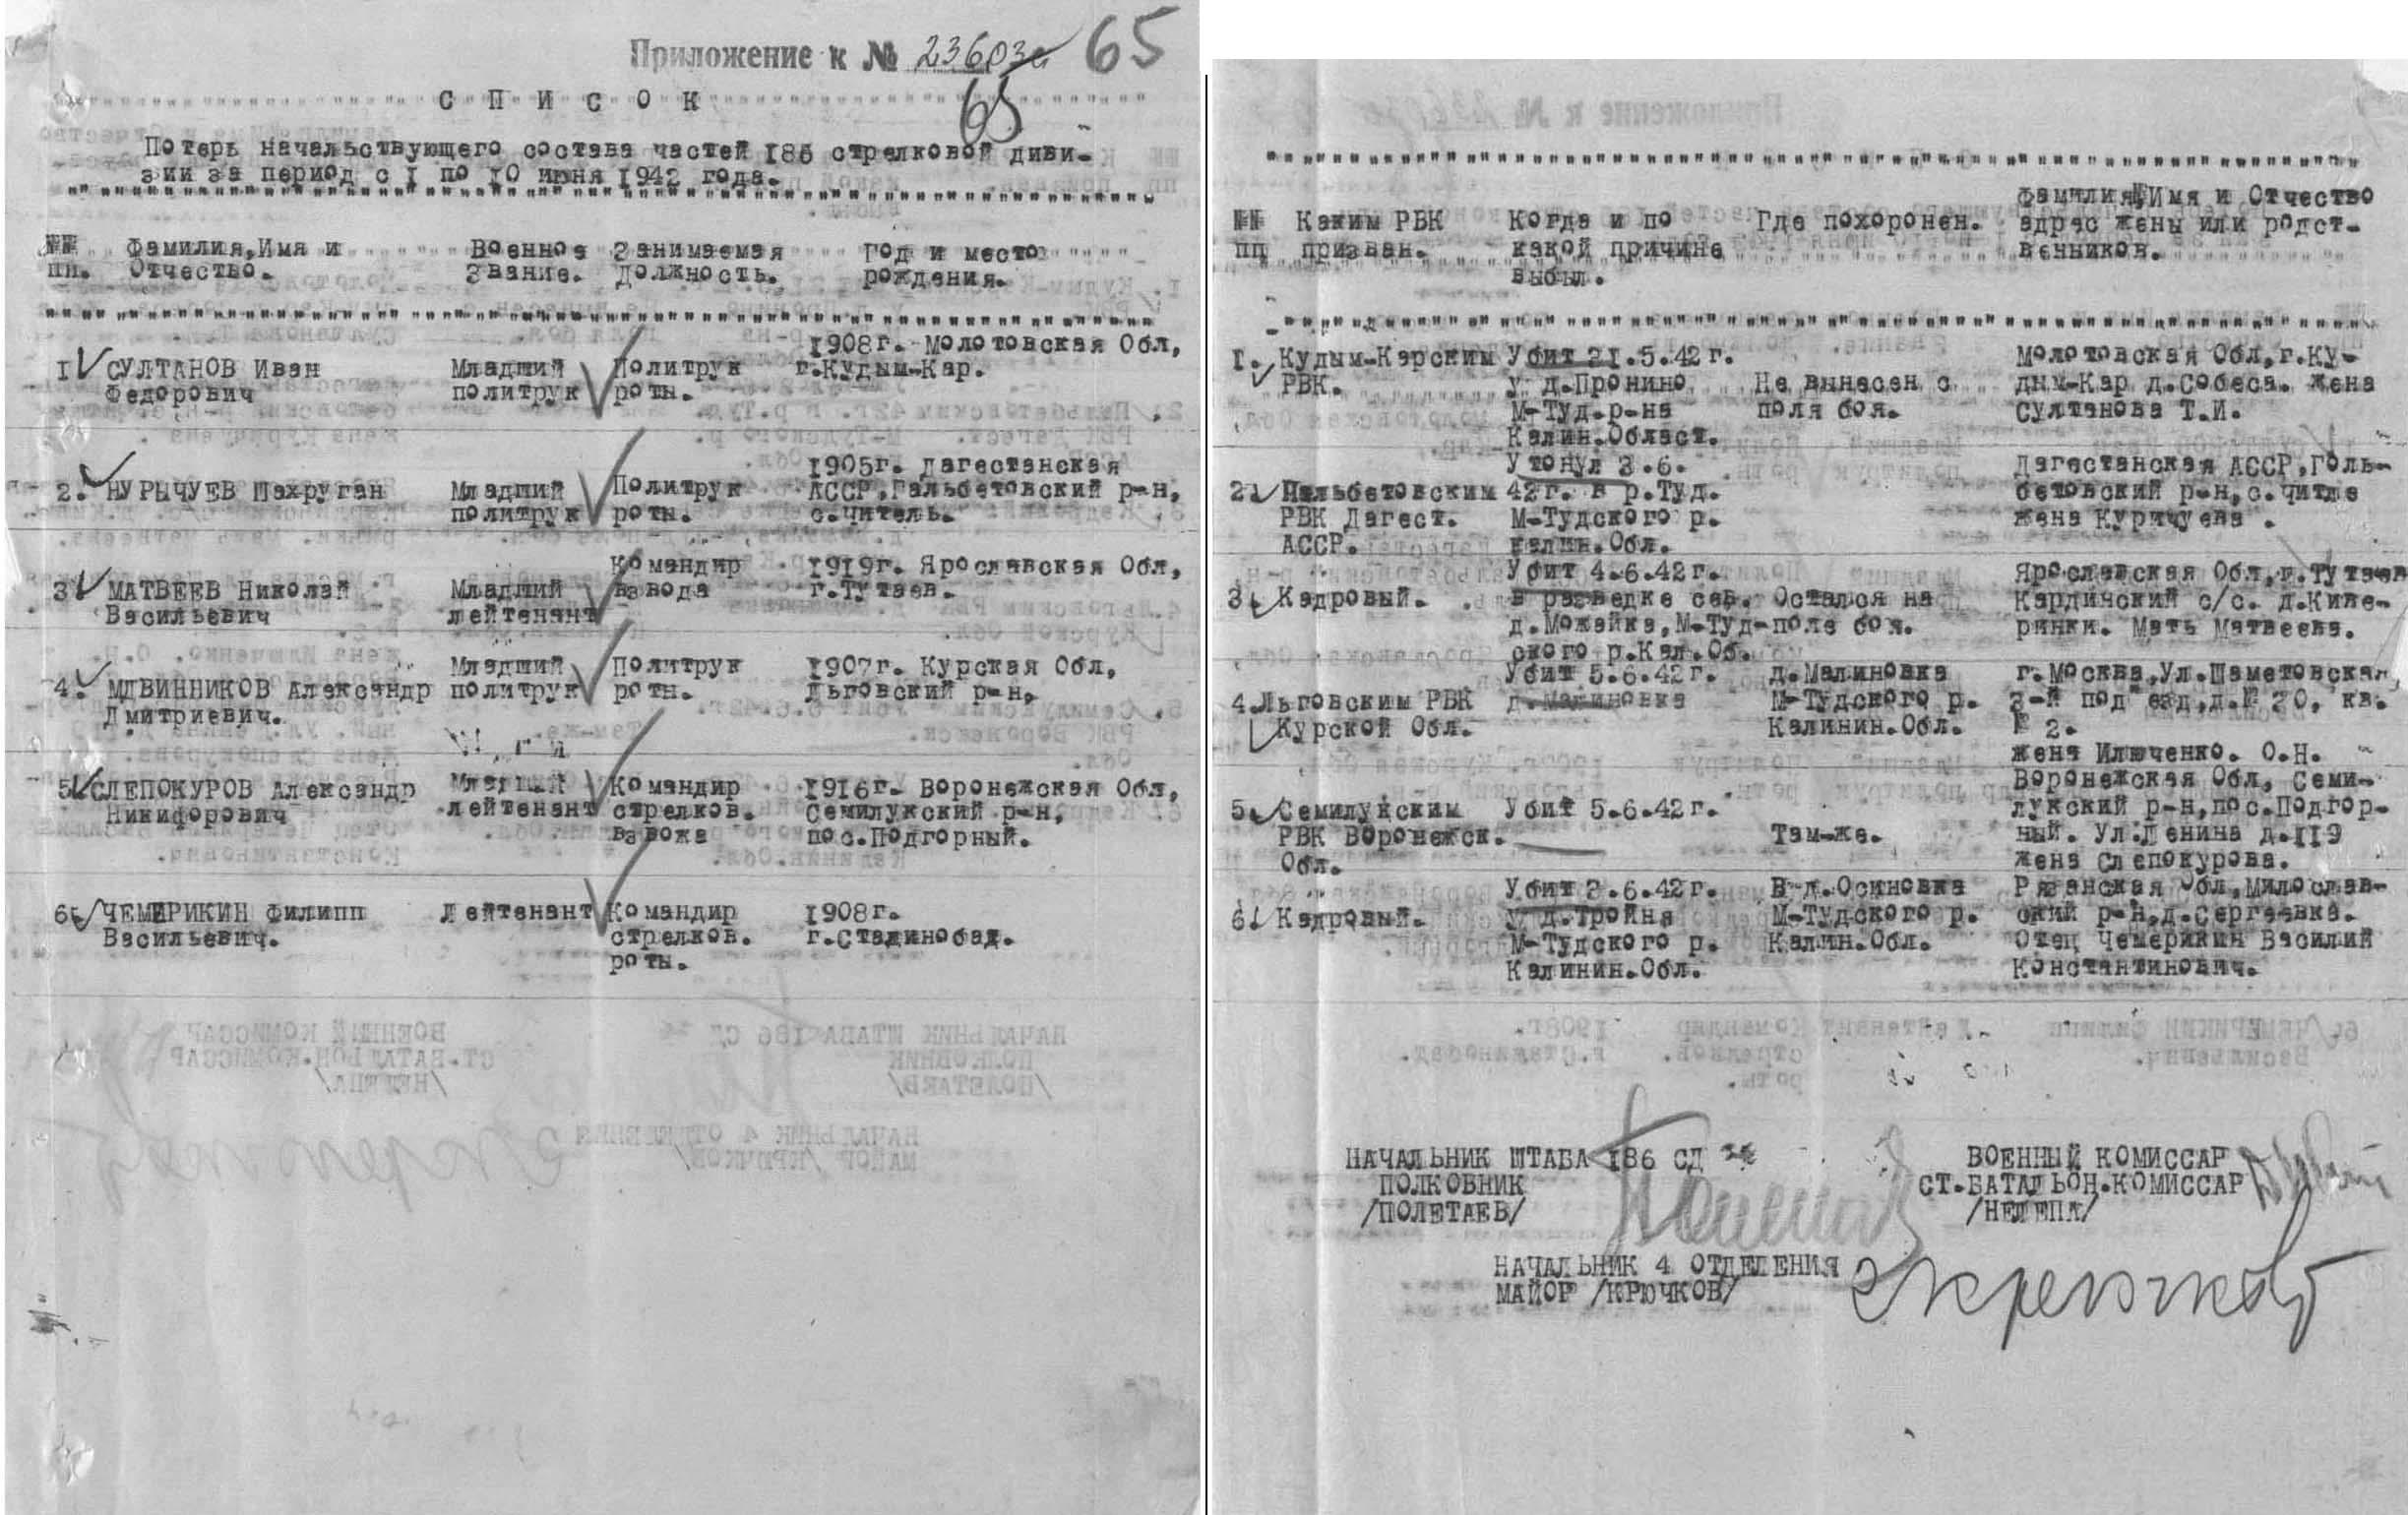 Приложение к № 23603с 65
65
С П И С О К
Потерь начальствующего состава частей 186 стрелковой диви-
зии за период с I по I0 июня I942 года.
№№ Фамилия,Имя и Военное Занимаемая Год и место
пп. Отчество. Звание. Должность. рождения.
I908г. Молотовская Обл,
I СУЛТАНОВ Иван Младший Политрук г.Кудым-Кар.
Федорович политрук роты.
I905г. Дагестанская
2. НУРЫЧУЕВ Шахруган Младший Политрук АССР,Гальбетовский р-н,
политрук роты. с.читель.
Командир I9I9г. Ярославская Обл,
3 МАТВЕЕВ Николай Младший взвода г.Тутаев.
Васильевич лейтенант
Младший Политрук I907г. Курская Обл,
4. МДВИННИКОВ Александр политрук роты. Льговский р-н,
Дмитриевич.
5 СЛЕПОКУРОВ Александр Младший Командир I9I6г. Воронежская Обл,
Никифорович лейтенант стрелков. Семилукский р-н,
взвожа пос.Подгорный.
6 ЧЕМЕРИКИН Филипп Лейтенант Командир I908г.
Васильевич. стрелков. г.Сталинобад.
роты.
Фамилия,Имя и Отчество
№№ Каким РВК Когда и по Где похоронен. адрес жены или родст-
пп призван. какой причине венников.
выбыл.
I. Кудым-Карским Убит 2I.5.42г. Молотовская Обл,г.Ку-
РВК. у д.Пронино Не вынесен с дым-Кар д.Собеса. жена
М-Туд.р-на поля боя. Султанова Т.И.
Калин.Област.
Утонул 3.6. Дагестанская АССР,Голь-
2 Нальбетовским 42г. в р.Туд. бетовский р-н,с.читле
РВК Дагест. М-Тудского р. жена Куричуева .
АССР. Калин.Обл.
Убит 4.6.42г. Ярославская Обл,г.Тутаев
3. Кадровый. в разведке сев. Остался на Кардинский с/с. д.Кине-
д.Можайка,М-Туд- поле боя. ринки. Мать Матвеева.
ского р.Кал.Об.
Убит 5.6.42г. д.Малиновка г.Москва,Ул.Шаметовская,
4.Льговским РВК д.Малиновка М-Тудского р. 3-й под"езд,д.№ 20, кв.
Курской Обл. Калинин.Обл. № 2.
жена Илюченко. О.Н.
Воронежская Обл, Семи-
5. Семилукским Убит 5.6.42г. лукский р-н,пос.Подгор-
РВК Воронежск. Там-же. ный. Ул.Ленина д.II9
Обл. жена Слепокурова.
Убит 3.6.42г. В д.Осиновка Рязанская Обл,Милослав-
6. Кадровый. у д.Тройня М-Тудского р. ский р-н,д.Сергеевка.
М-Тудского р. Калин.Обл. Отец Чемерикин Василий
Калинин.Обл. Константинович.
НАЧАЛЬНИК ШТАБА I86 СД ВОЕННЫЙ КОМИССАР
ПОЛКОВНИК СТ.БАТАЛЬОН.КОМИССАР
/ПОЛЕТАЕВ/ /НЕЛЕПА/
НАЧАЛЬНИК 4 ОТДЕЛЕНИЯ
МАЙОР /КРЮЧКОВ/